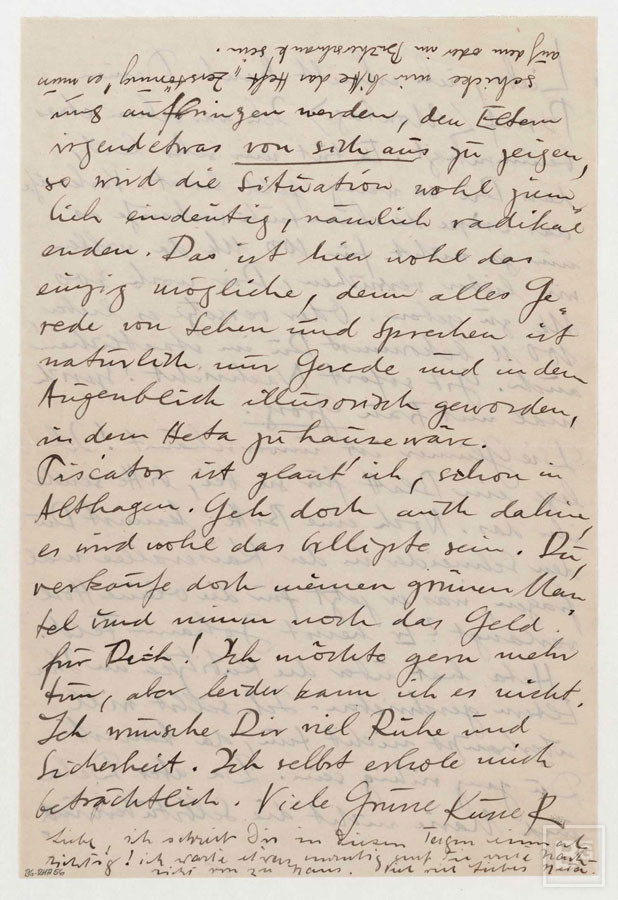 schicke mir bitte das Heft „Zerstörung", es muss
auf dem oder im Bücherschrank sein.
ung aufbringen werden, den Eltern
irgendetwas von sich aus zu zeigen,
so wird die Situation wohl ziem-
lich eindeutig, nämlich radikal
enden. Das ist hier wohl das
einzig mögliche, denn alles Ge-
rede von Sehen und Sprechen ist
natürlich nur Gerede und in dem
Augenblick illusorisch geworden,
in dem Heta zuhause wäre.
Piscator ist glaub ich, schon in
Althagen. Geh doch auch dahin,
es wird wohl das billigste sein. Du,
verkaufe doch meinen grünen Man-
tel und nimm noch das Geld
für Dich! Ich möchte gern mehr
tun, aber leider kann ich es nicht.
Ich wünsche Dir viel Ruhe und
Sicherheit. Ich selbst erhole mich
beträchtlich. Viele Grüsse Küsse R
Liebe, ich schreib Dir in diesen Tagen einmal
richtig! ich warte etwas unruhig auf
nicht von zu Haus. Viel viel Liebes